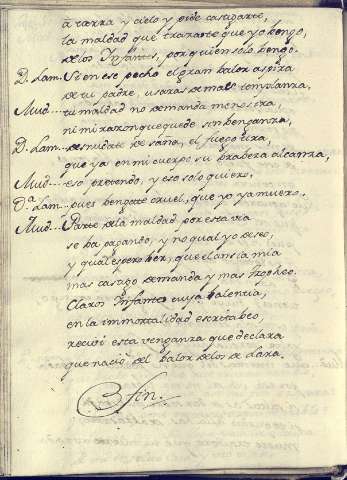 a tierra y cielo y pide castigarte,
la maldad que trazaste que yo bengo,
de los Infantes, por quien solo bengo.
D. Lam. Si en ese pecho el gran balor aspira
de tu padre, usaras de mas templanza,
Mud. tu maldad no demanda menos ira,
ni mi razon que quede sin benganza,
D. Lam. desnudate de saña, el fuego tira,
que ya en mi cuerpo su braveza alcanza,
Mud. eso pretendo, y eso solo quiero.
Dª Lam. pues bengate cruel, que yo ya muero.
Mud. Parte de la maldad por esta via
se ha pagando, y no qual yo deseo,
y qual espero ber, que el ansia mia
mas castigo demanda y mas tropheo.
Claros Infantes cuya balentia,
en la immortalidad escrita beo,
recivi esta venganza que declara
que nacio del balor de los de Lara.
fin.